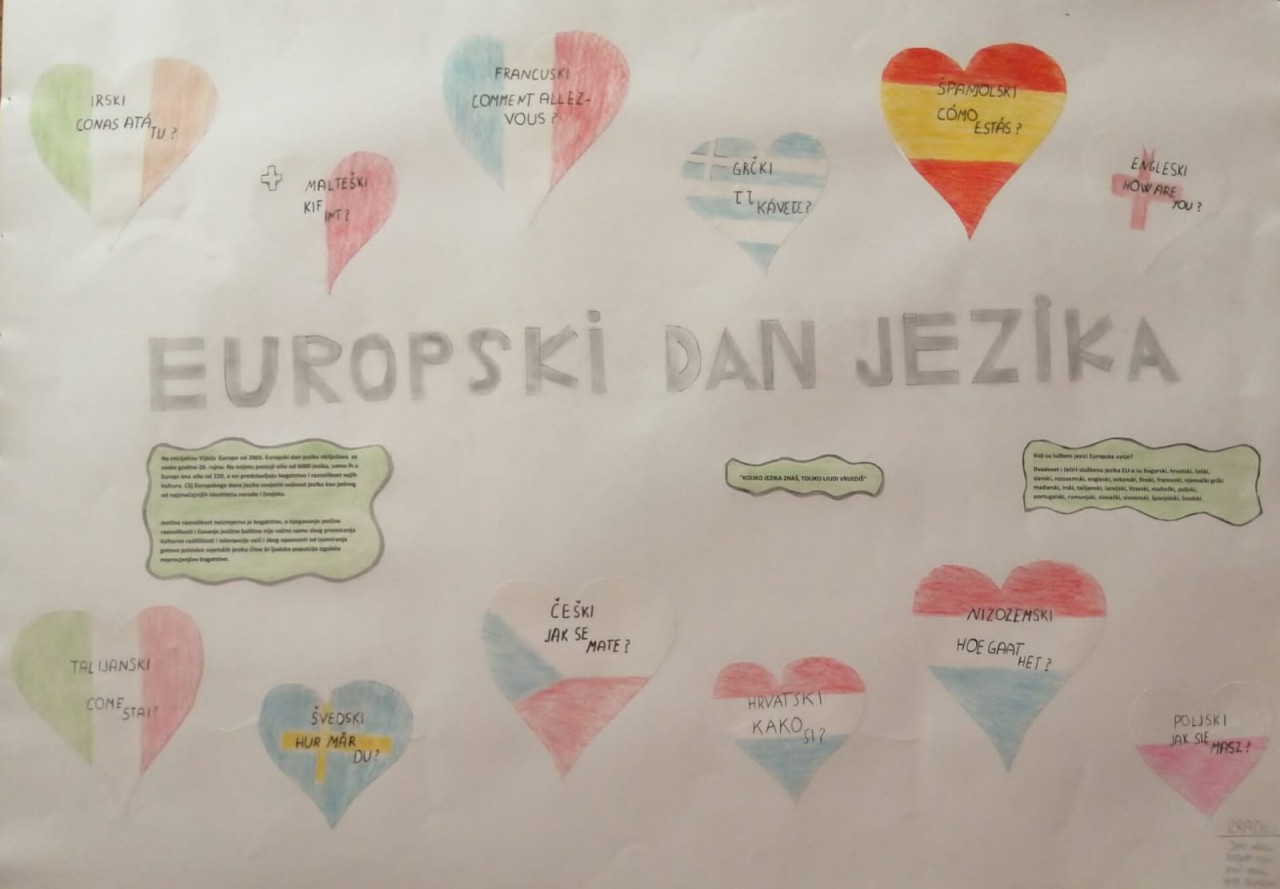 IRSKI
CONAS ATÁ
TU?
MALTEŠKI
KIF
INT?
FRANCUSKI
COMMENT ALLEZ-
VOUS?
GRČKI
KÁVETE?
ŠPANJOLSKI
CÓMO
ESTÁS?
ENGLESKI
HOW ARE
YOU?
EUROPSKI DAN JEZIKA
Na inicijativu Vijeća Europe od 2001. Europski dan jezika obilježava se
svake godine 26. rujna. Na svijetu postoji više od 6000 jezika, samo ih u
Europi ima više od 220, a svi predstavljaju bogatstvo i raznolikost svojih
kultura. Cilj Europskoga dana jezika osvijetliti važnost jezika kao jednog
od najznačajnijih identiteta naroda i čovjeka.
Jezična raznolikost neizmjerno je bogatstvo, a njegovanje jezične
raznolikosti i čuvanje jezične baštine nije važno samo zbog promicanja
kulturne različitosti i tolerancije već i zbog opasnosti od izumiranja
gotovo polovice svjetskih jezika čime bi ljudska populacija izgubila
neprocjenjivo bogatstvo.
"KOLIKO JEZIKA ZNAŠ, TOLIKO LJUDI VRIJEDIŠ"
Koji su službeni jezici Europske unije?
Dvadeset i četiri službena jezika EU-a su bugarski, hrvatski, češki,
danski, nizozemski, engleski, estonski, finski, francuski, njemački grčki
mađarski, irski, talijanski, latvijski, litavski, malteški, poljski,
portugalski, rumunjski, slovački, slovenski, španjolski, švedski.
TALIJANSKI
COME
STAI?
ŠVEDSKI
HUR MÅR
DU?
ČEŠKI
JAK SE
MATE?
HRVATSKI
KAKO
SI?
NIZOZEMSKI
HOE GAAT
HET?
POLJSKI
JAK SIĘ
MASZ?